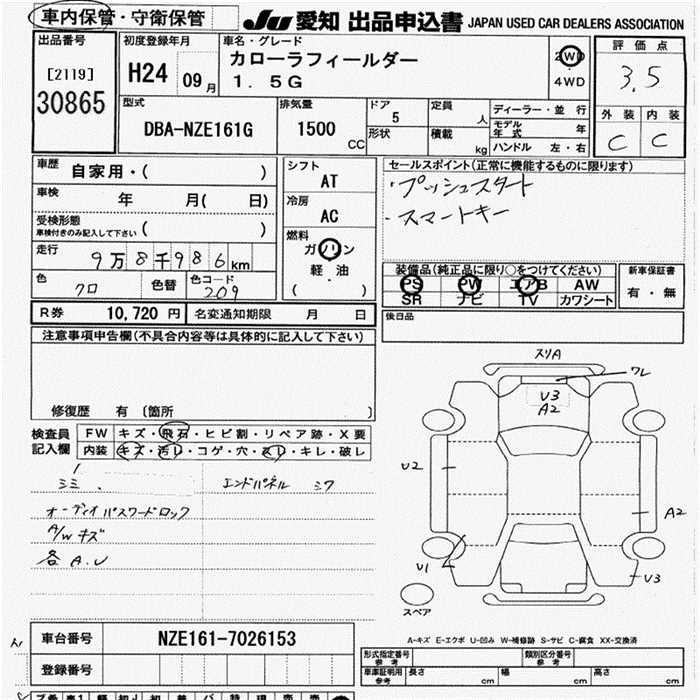 車内保管・守衛保管
JU 愛知 出品申込書 JAPAN USED CAR DEALERS ASSOCIATION
出品番号
[2119]
30865
初度登録年月
H24 09月
車名・グレード
カローラフィールダー
1.5G
2WD
4WD
評価点
3.5
外装 内装
C C
型式
DBA-NZE161G
排気量
1500
CC
ドア
5
形状
定員
人
積載
kg
ディーラー・並行
モデル年式 年
ハンドル 左・右
車歴 自家用・( )
車検 年 月( 日)
受検形態
車検付きのみ記入して下さい ( )
走行 9万8千986km
色 クロ 色替 色コード 209
シフト
AT
冷房
AC
燃料
ガソリン
軽油
( )
セールスポイント(正常に機能するものに限ります)
・プッシュスタート
・スマートキー
装備品(純正品に限り○をつけてください)
PS PW エアB AW
SR ナビ TV カワシート
新車保証書
有・無
後日品
R券 10,720円 名変通知期限 月 日
注意事項申告欄(不具合内容等は具体的に記入して下さい)
修復歴 有 〔箇所 〕
検査員記入欄
FW キズ・飛石・ヒビ割・リペア跡・X要
内装 キズ・汚レ・コゲ・穴・スレ・キレ・破レ
シミ
エンドパネル シワ
オーディオパスワードロック
A/W キズ
各A.U
スリA
ワレ
U3
A2
U2
A2
U1
U3
スペア
A-キズ E-エクボ U-凹み W-補修跡 S-サビ C-腐食 XX-交換済
車台番号 NZE161-7026153
登録番号
形式指定番号
参考
類別区分番号
参考
車庫証明用
参考
長さ cm 幅 cm 高さ cm